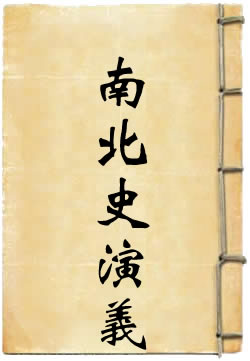 南北史演義